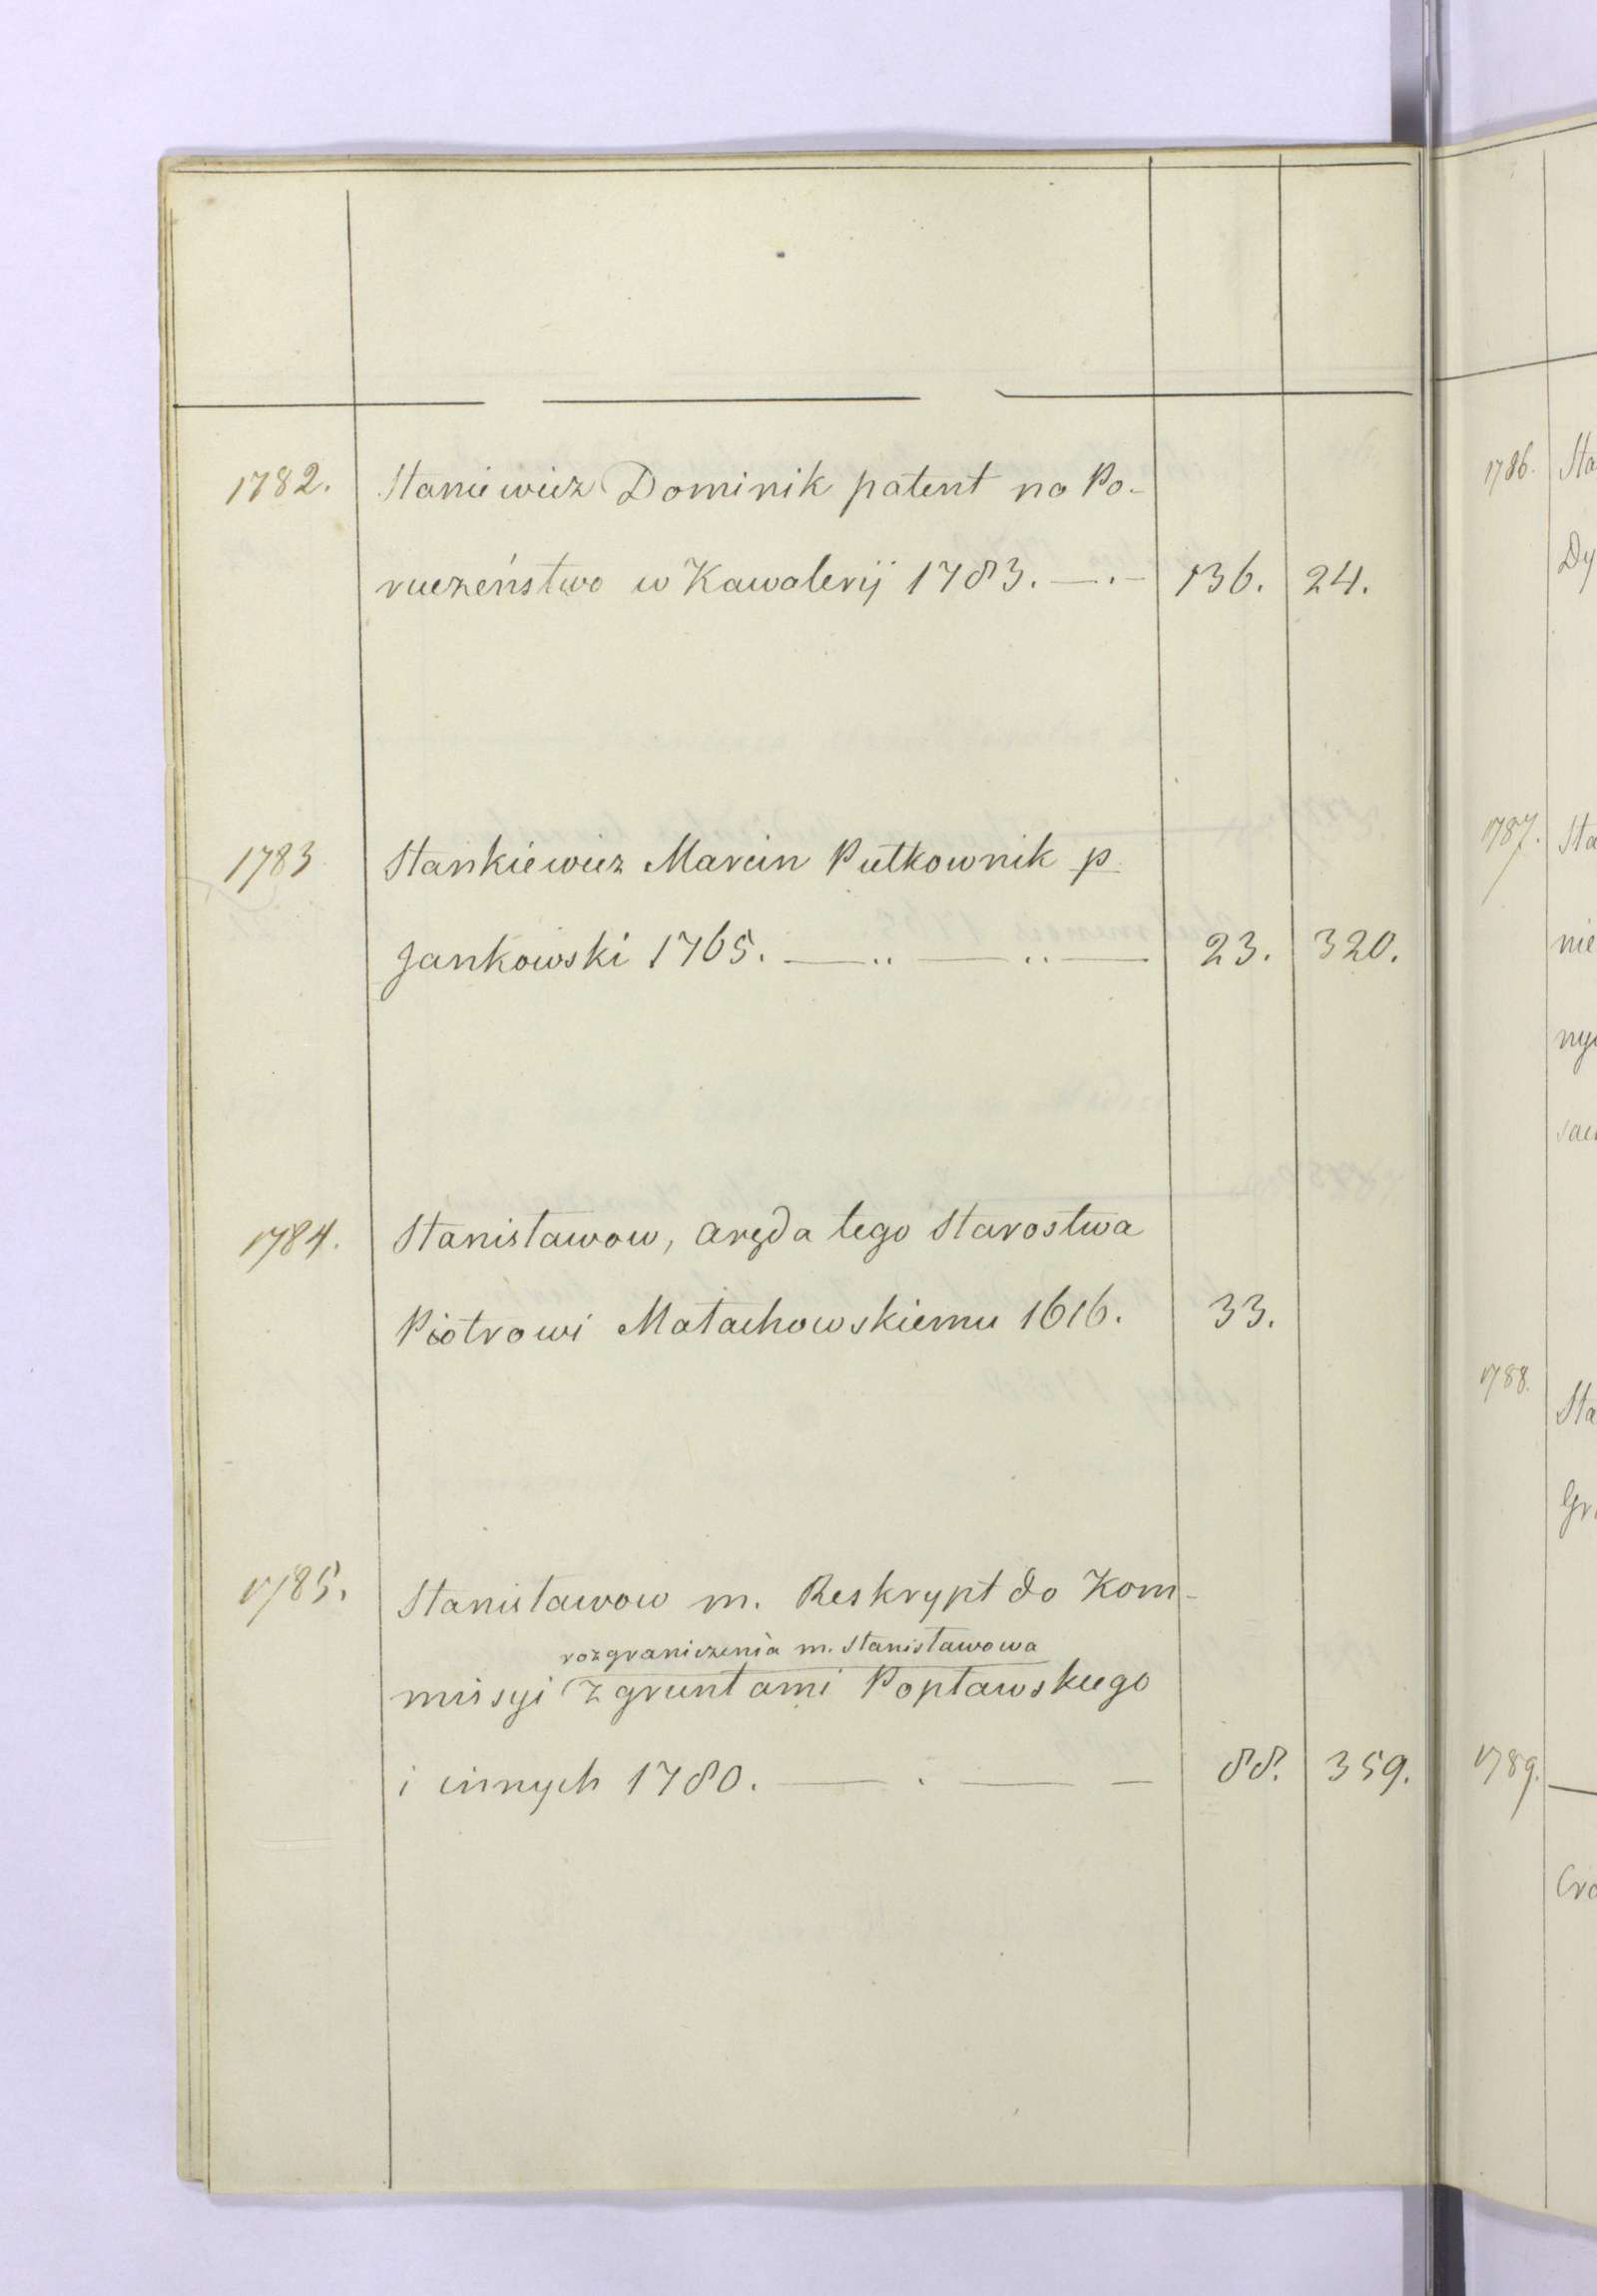 1782. Staniewicz Dominik patent na Po-
ruczeństwo w Kawaleryj 1783. —.— 136. 24.
1783 Stankiewicz Marcin Pułkownik p.
Jankowski 1765. —..—..— 23. 320.
1784. Stanisławow, aręda tego Starostwa
Piotrowi Małachowskiemu 1616. 33.
1785. Stanisławow m. Reskrypt do Kom-
rozgraniczenia m. Stanisławowa
missyi z gruntami Popławskiego
i innych 1780. — . — — 88. 359.
1786. Sta
Dy
1787. Sta
nie
ny
1788. Sta
Gr
1789. —
Cra